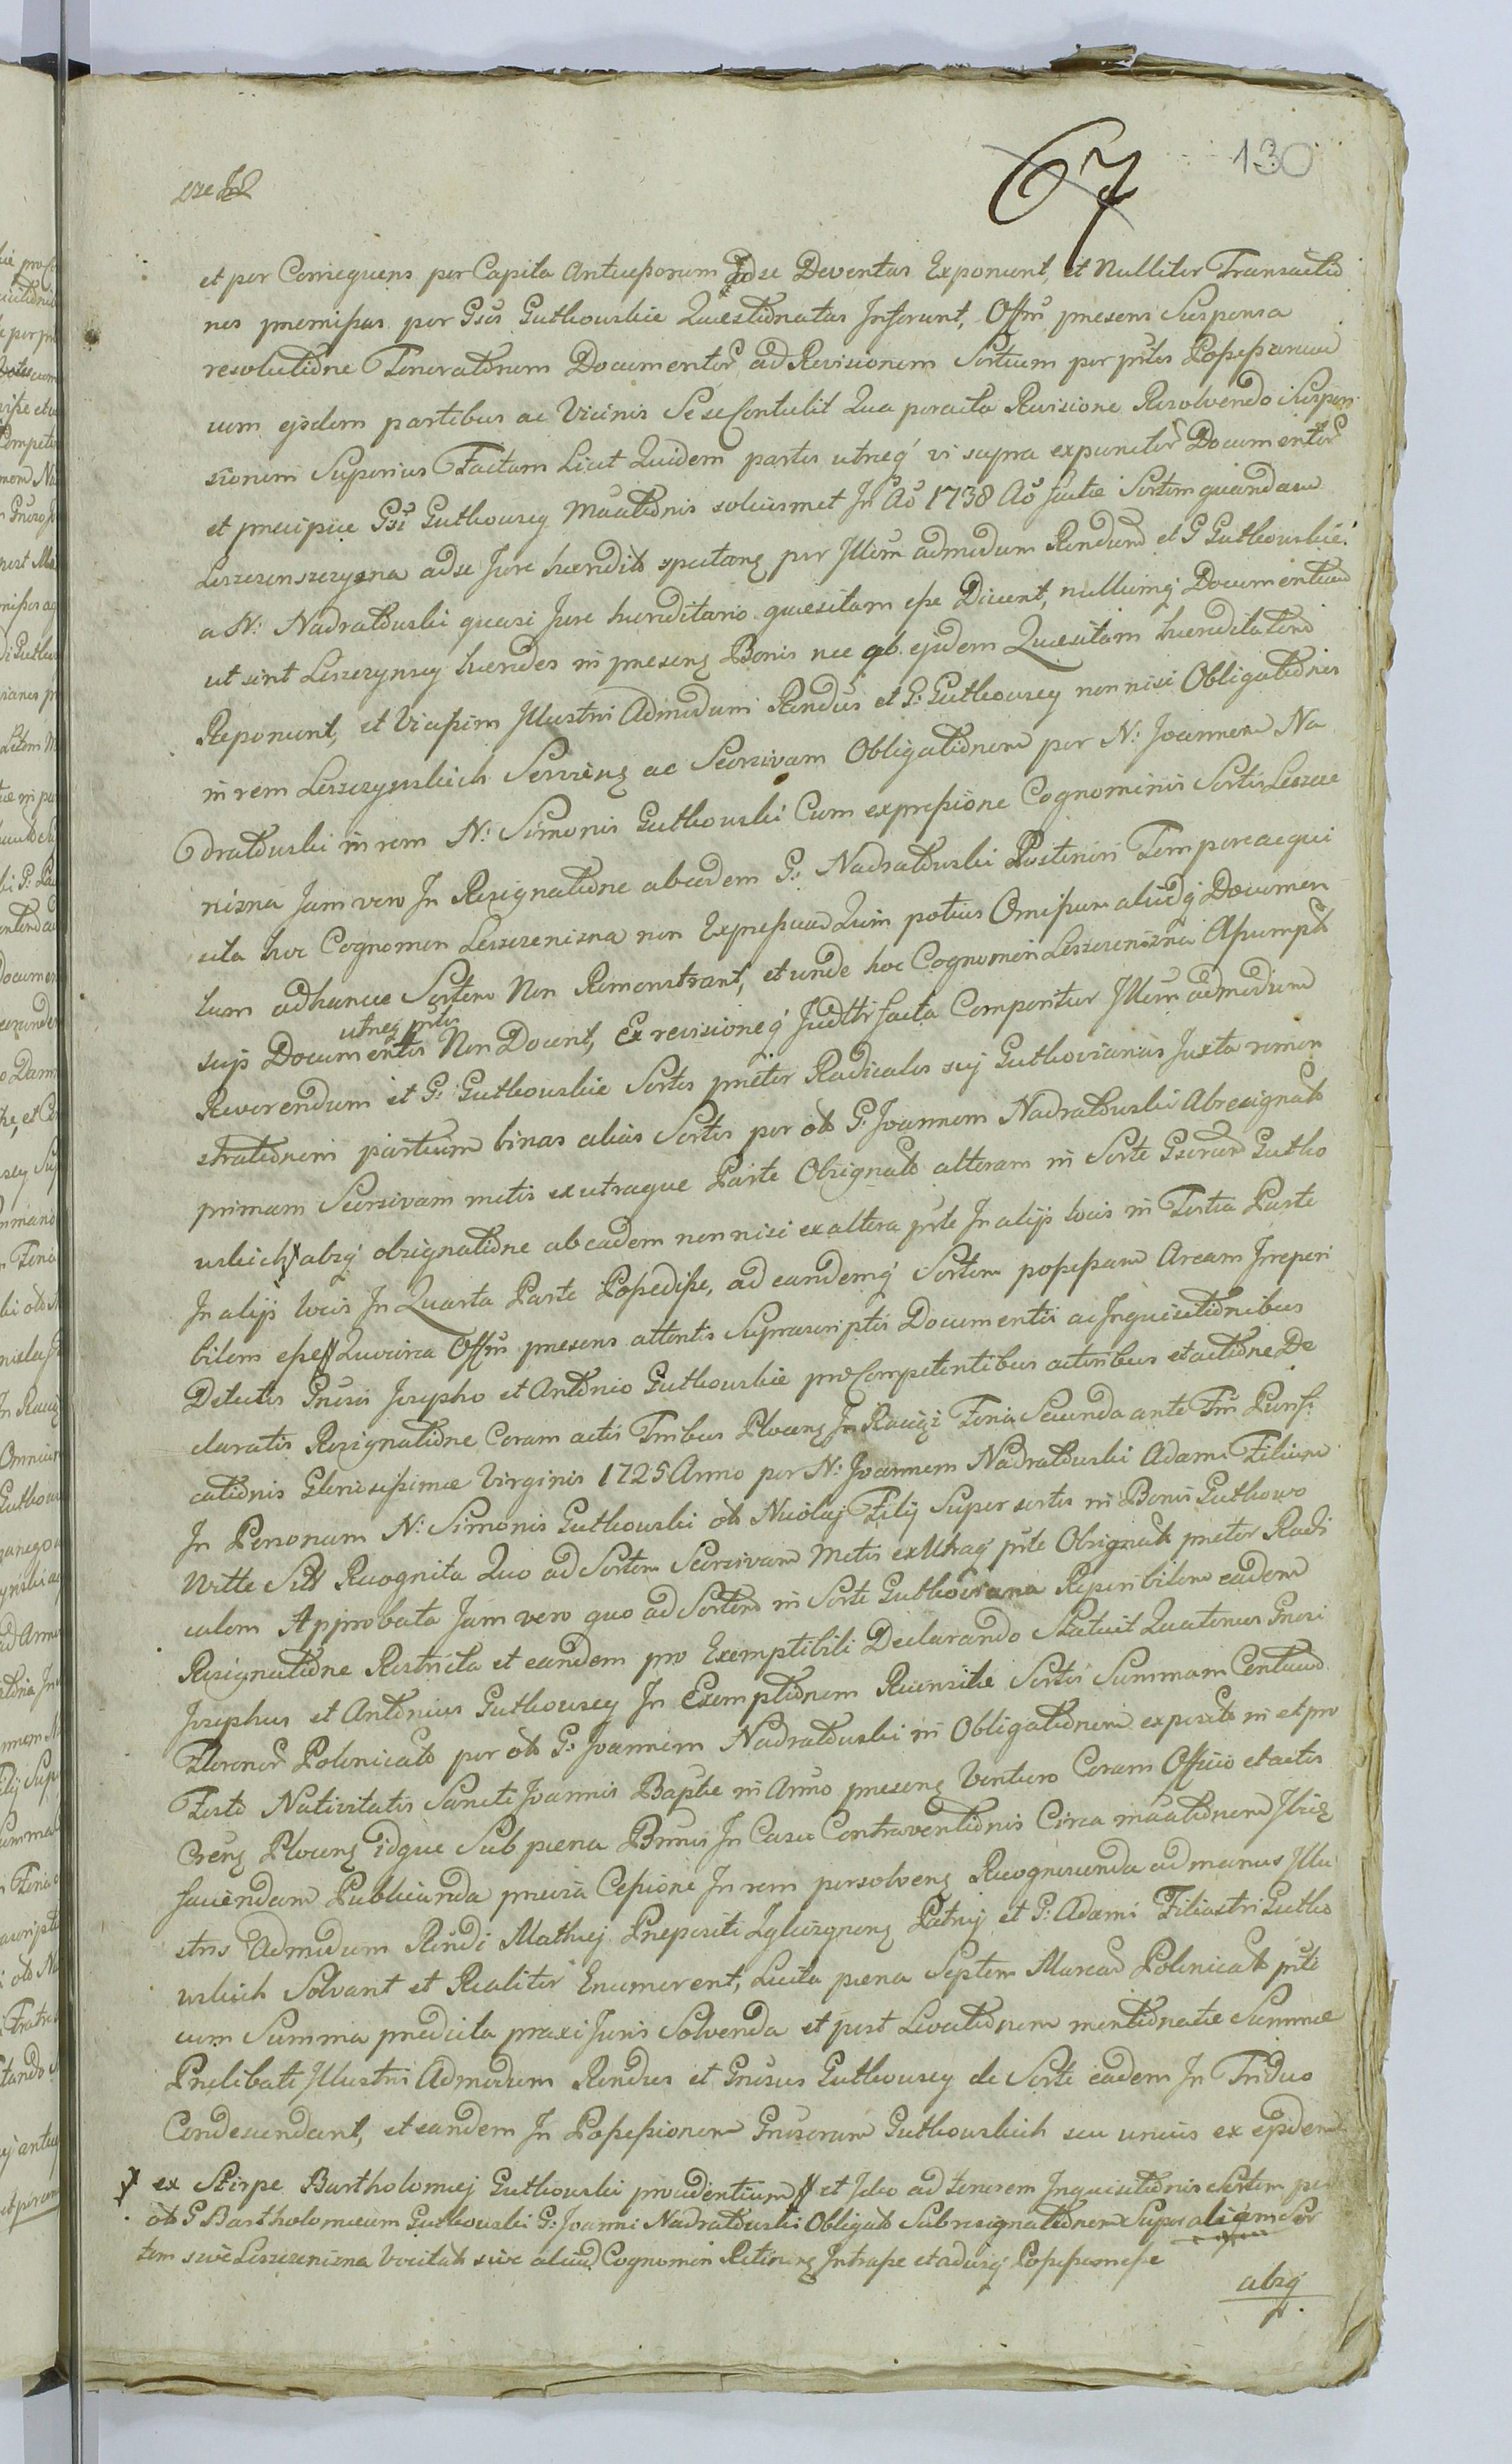 67 130
et per Consequens per Capita Antecessorum ad se Deventas Exponunt, et Nulliter Transactio
nes premissas per Gsos Gutkowskie Questionatas Inferunt, Offm presens Suspensa
resolutione Tenerationem Documentor ad Revisionem Sortium per ptes Possessarum
cum ejsdem partibus ac Vicinis Sese Contulit Qua peracta Revisione Resolvendo Suspen
sionem Superius Factam Licet Quidem partes utreq vi supra expunctor Documentor
et precipue Gsi Gutkowscy Mutationis soliusmet In Ao 1738 Ao factae Sortem quandam
Leszczenszczyzna ad se Jure haeredit spectang per Illrm admodum Rendum et G Gutkowskie
a N: Nadratowski quasi Jure haereditario quaesitam esse Dicunt, nullumq Documentum
ut sint Leszczynscy haeredes in preseng Bonis nec ab ejsdem Quaesitam haereditatem
Reponunt, et Vicissim Illustri Admodum Rendus et G: Gutkowscy non nisi Obligationes
in rem Leszczynskich Servieng ac Seorsivam Obligationem per N: Joannem Na
dratowski in rem N: Simonis Gutkowski Cum expressione Cognominis Sortis Leszcze
nizna Jam vero In Resignatione ab eadem G: Nadratowski Posteriori Tempore acqui
sita hoc Cognomen Leszczenizna non Expressum Quin potius Omissum aliudq Documen
tum ad hancce Sortem Non Remonstrant, et unde hoc Cognomen Leszczenizna Assumpt
utreq ptes
suis Documentis Non Docent, Ex revisioneq Judttr facta Comperitur Illrum admodum
Reverendum et G: Gutkowskie Sortes praeter Radicales suj Gutkovianas Juxta remon
strationem partium binas alias Sortes per ot G: Joannem Nadratowski Abresignat
primam Seorsivam metis ex utraque Parte Obsignat alteram in Sorte Gsorum Gutko
wskich absq obsignatione ab eadem non nisi ex altera pte In alijs locis in Tertia Parte
In alijs locis In Quarta Parte Possedisse, ad eandemq Sortem possessam Aream Irreperi
bilem esse Quocirca Offm presens attentis Suprascriptis Documentis ac Inquisitionibus
Deductis Gnrosis Josepho et Antonio Gutkowskie pro Competentibus actoribus et actione De
claratis Resignatione Coram actis Tribus Ploceng In Raciąż Feria Secunda ante Ftm Purifi
cationis Gloriosissimae Virginis 1725 Anno per N: Joannem Nadratowski Adami Filium
In Personam N: Simonis Gutkowski ot Nicolaj Filij Super sortes in Bonis Gutkowo
Witte Recognita Quo ad Sortem Seorsivam Metis ex Utraq pte Obsignat praeter Radi
calem Approbata Jam vero quo ad Sortem in Sorte Gutkoviana Reperibilem eadem
Resignatione Restricta et eandem pro Exemptibili Declarando Statuit Quatenus Gnrosi
Josephus et Antonius Gutkowscy In Exemptionem Recensitae Sortis Summam Centum
Florenor Polonicat per ot G: Joannem Nadratowski in Obligationem exposit in et pro
Festo Nativitatis Sancti Joannis Baptae in Anno preseng Venturo Coram Officio et actis
Creng Ploceng idque Sub poena Bnnis In Casu Contraventionis Circa mutationem Ibiq
faciendam Publicanda previa Cessione In rem persolveng Recognoscenda ad manus Illu
stris Admodum Rendi Mathiej Prepositi Zglizyneng Patruj et G: Adami Filiastri Gutko
wskich Solvant et Realiter Enumerent, Lucita poena Septem Marcar Polonicat pti
cum Summa predicta praxi Juris Solvenda et post Levationem mentionatae Summae
Prelibati Illustri Admodum Rendus et Gnrosus Gutkowscy de Sorte eadem In Triduo
Condescendant, et eandem In Possessionem Gnrosorum Gutkowskich seu unius ex ejsdem
ex Stirpe Bartholomej Gutkowski procedentium et Ideo ad tenorem Inquisitionis Sortem per
ot G Bartholomeum Gutkowski G: Joanni Nadratowski Obligat Sub resignationem Super aliam Sor
tem sive Leszczenizna Vocitat sive aliud Cognomen Retineng Intrasse et adusq Possessam esse
absq